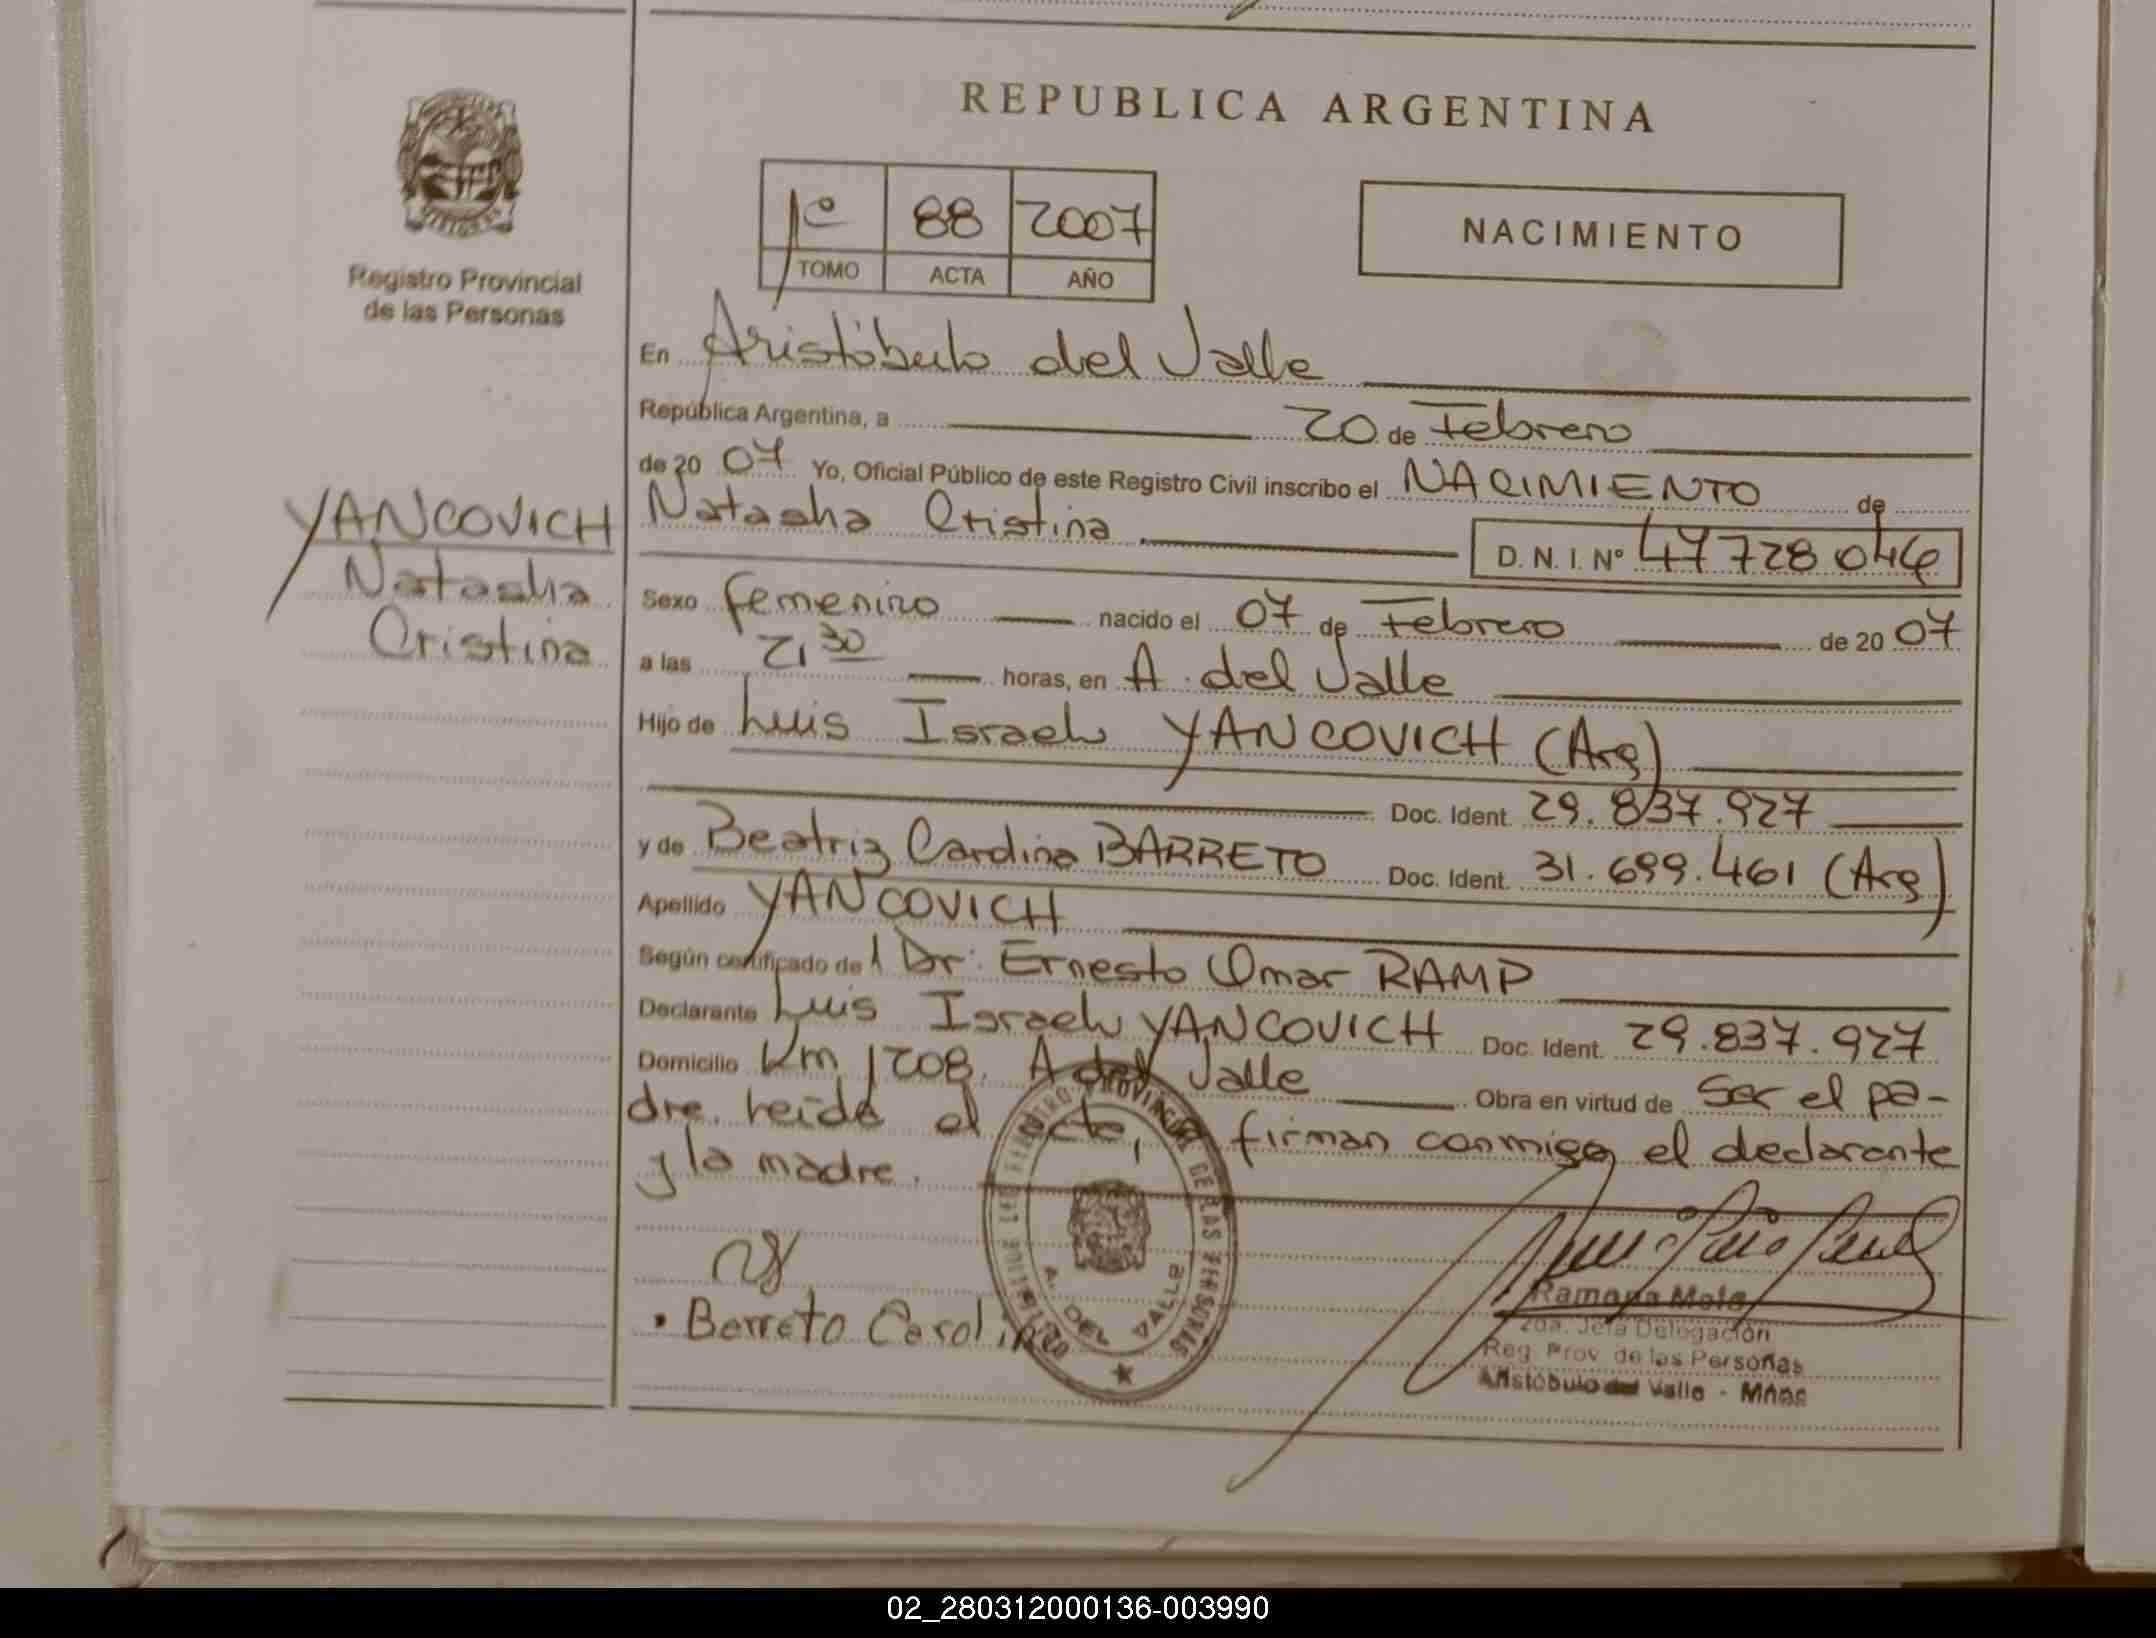 REPUBLICA ARGENTINA
Registro Provincial
de las Personas
1º 88 2007
TOMO ACTA AÑO
NACIMIENTO
En Aristóbulo del Valle
República Argentina, a 20 de Febrero
de 20 07 Yo, Oficial Público de este Registro Civil inscribo el NACIMIENTO de
YANCOVICH
Natasha
Cristina
Natasha Cristina
D. N. I. Nº 47 728 046
Sexo femenino nacido el 07 de Febrero de 20 07
a las 21 30 horas, en A. del Valle
Hijo de Luis Israel YANCOVICH (Arg)
Doc. Ident. 29.837.927
y de Beatriz Carolina BARRETO Doc. Ident. 31.699.461 (Arg)
Apellido YANCOVICH
Según certificado de l Dr. Ernesto Omar RAMP
Declarante Luis Israel YANCOVICH Doc. Ident. 29.837.927
Domicilio Km 1208. A del Valle Obra en virtud de Ser el pa-
dre. leída el acta, firman conmigo el declarante
y la madre.
Barreto Carolina
A. DEL VALLE
Ramona
2da. Jefa Delegación
Reg. Prov. de las Personas
Aristóbulo del Valle - Mnes
02_280312000136-003990